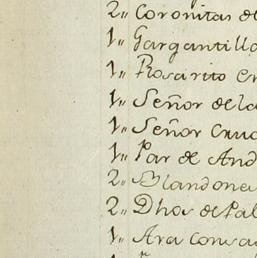 2" Coronitas de
1" Gargantilla
1" Rosarito
1" Señor de la
1" Señor Cruc
1" Par de And
2" Blandones
2" Dhos de Pal
1" Ara consa